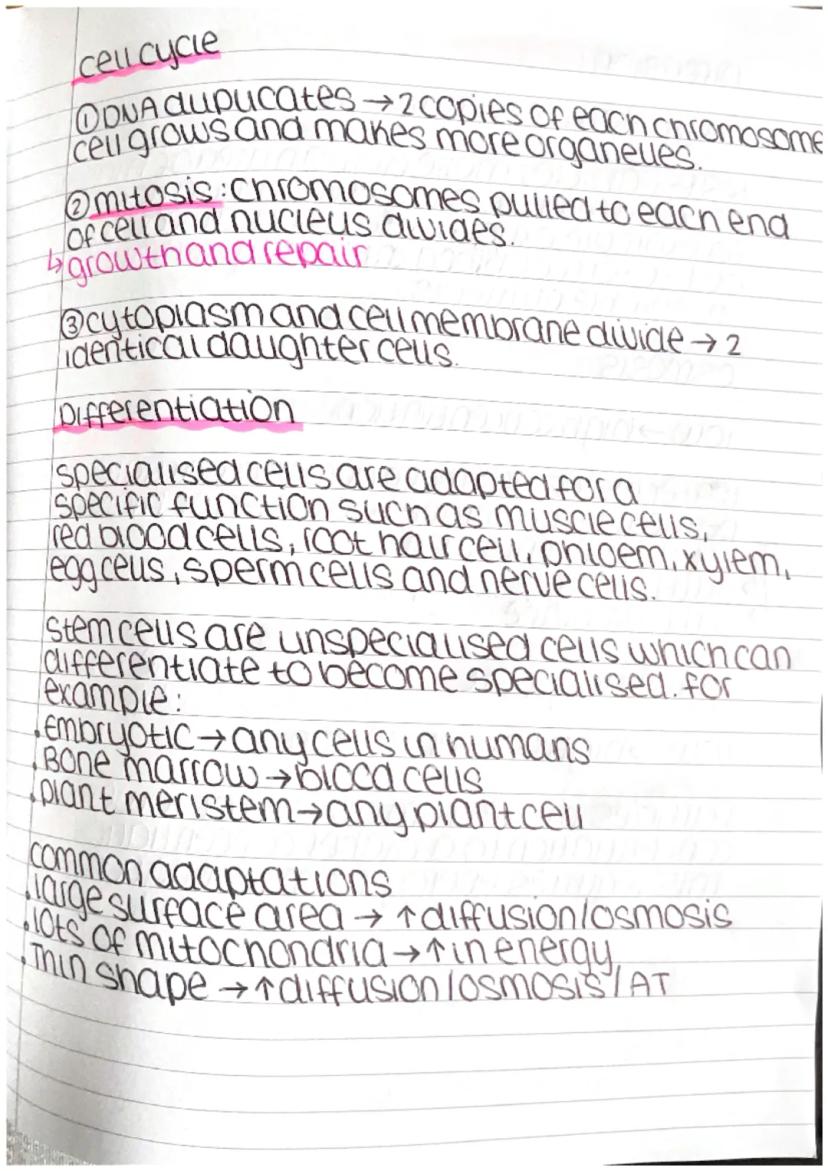 cell cycle
①DNA duplicates → 2 copies of each chromosome
cell grows and makes more organelles.
②mitosis: chromosomes pulled to each end
of cell and nucleus divides.
↳ growth and repair
③cytoplasm and cell membrane divide → 2
identical daughter cells.
Differentiation
specialised cells are adapted for a
specific function such as muscle cells,
red blood cells, root hair cell, phloem, xylem,
egg cells, sperm cells and nerve cells.
stem cells are unspecialised cells which can
differentiate to become specialised. for
example:
.embryotic → any cells in humans
.Bone marrow → blood cells
.plant meristem → any plant cell
common adaptations
.large surface area → ↑ diffusion/osmosis
.lots of mitochondria → ↑ in energy
.Thin shape → ↑ diffusion/osmosis/AT